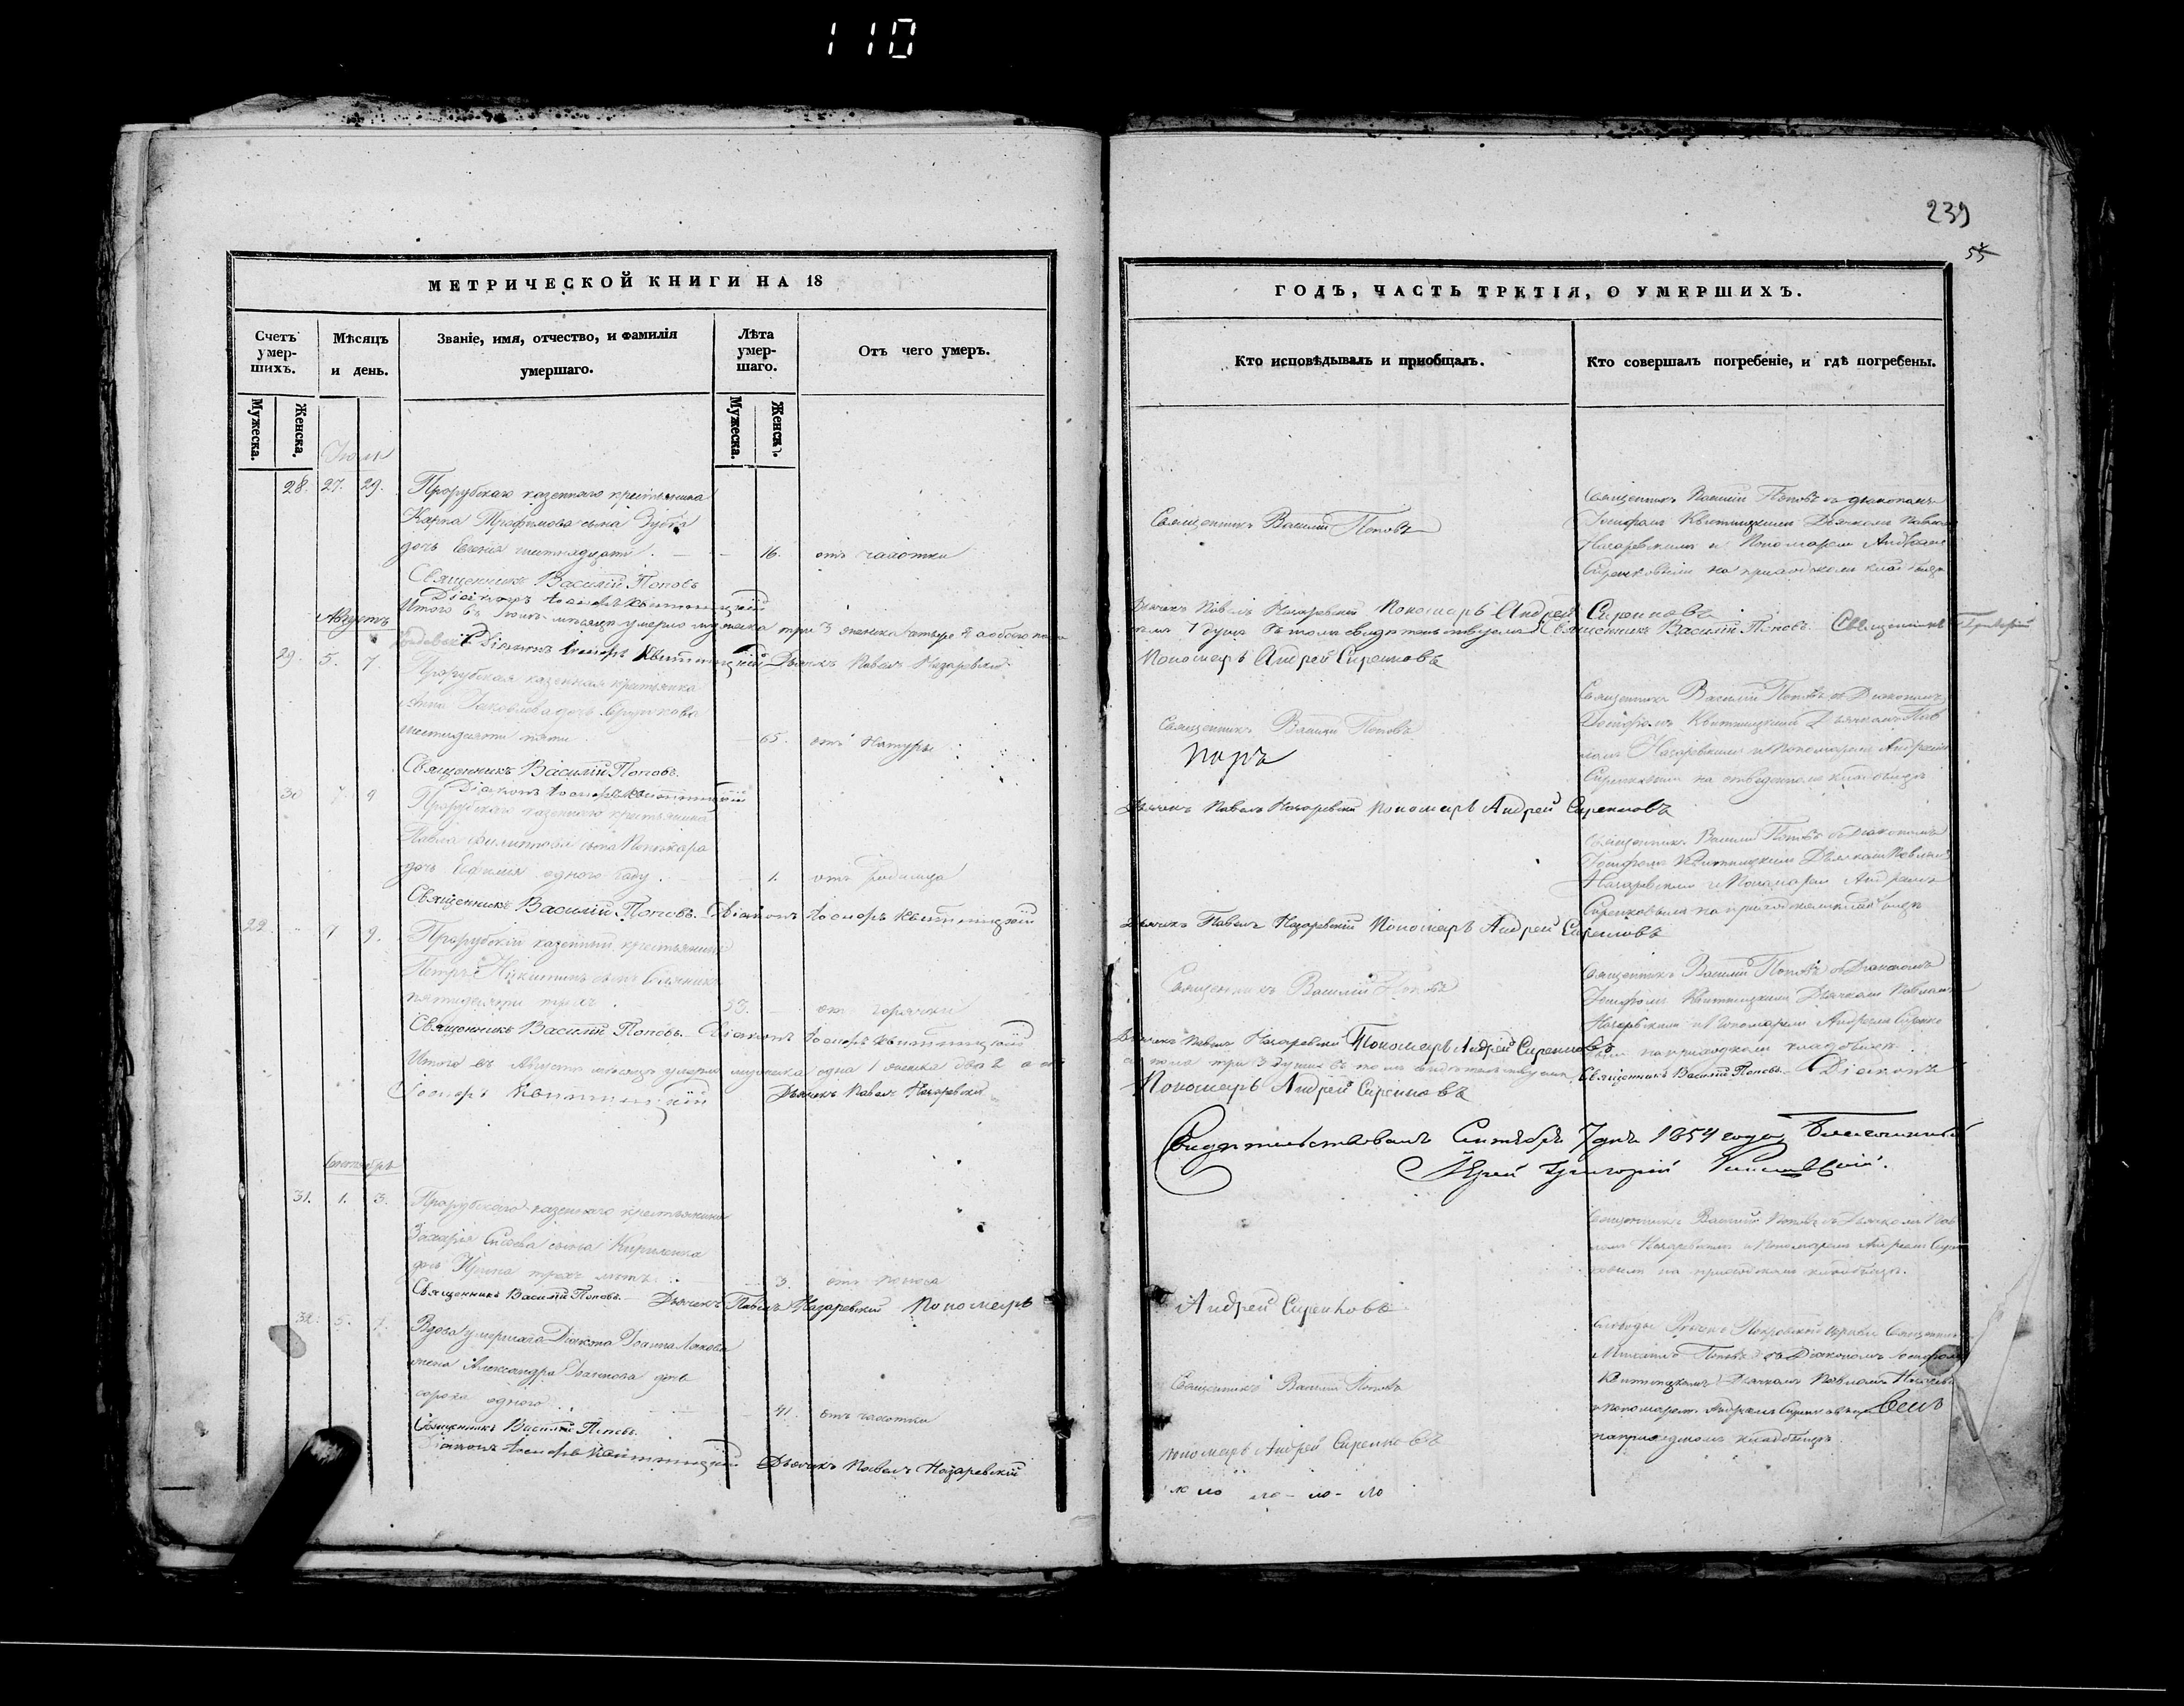 110
239
55
МЕТРИЧЕСКОЙ КНИГИ НА 18
Счетъ умер-шихъ.
Мужеска.
Женска.
Мѣсяцъ и день.
Званіе, имя, отчество, и фамилія умершаго.
Лѣта умер-шаго.
Мужеска.
Женск.
Отъ чего умеръ.
28. 27. 29. Прорубскаго казеннаго крестьянина
Карпа Трофимова сына Зубка
дочь Евгенія шестнадцати 16. отъ чахотки
Священникъ Василій Поповъ
Діаконъ Іосифъ Квитницкій
Августъ
Итого въ Іюлѣ мѣсяцѣ умерло мужеска три 3 женска четыре 4 а обоего пола
Діаконъ Іосифъ Квитницкій Дьячекъ Павелъ Назаревскій
29. 5. 7. Прорубская казенная крестьянка
Анна Іаковлева дочь
шестидесяти пяти 65. отъ Натуры
Священникъ Василій Поповъ.
Діаконъ Іосифъ Квитницкій
30 7 9 Прорубскаго казеннаго крестьянина
Павла Филиппова сына Пономара
дочь Евфимія одного году. 1. отъ родимца
Священникъ Василій Поповъ. Діаконъ Іосифъ Квитницкій
22. 7 9. Прорубскій казенный крестьянинъ
Петръ Никитинъ сынъ
пятидесяти трехъ. 53. отъ горячки
Священникъ Василій Поповъ. Діаконъ Іосифъ Квитницкій
Итого въ Августѣ мѣсяцѣ умерло мужеска одна 1 женска двѣ 2 а обо
Іосифъ Квитницкій Дьячекъ Павелъ Назаревскій
Сентябрь
31. 1. 3. Прорубскаго казеннаго крестьянина
Захарія Сисоева сына Кириленка
дочь Ирина трехъ лѣтъ. 3. отъ поноса
Священникъ Василій Поповъ. Дьячекъ Павелъ Назаревскій Пономарь
32. 5. 7. Вдова умершаго Діакона Іоанна
жена Александра Иванова дочь
сорока одного 41. отъ чахотки
Священникъ Василій Поповъ.
Діаконъ Іосифъ Квитницкій Дьячекъ Павелъ Назаревскій
ГОДЪ, ЧАСТЬ ТРЕТІЯ, О УМЕРШИХЪ.
Кто исповѣдывалъ и пріобщалъ.
Кто совершалъ погребеніе, и гдѣ погребены.
Священникъ Василій Поповъ
Священникъ Василій Поповъ съ діакономъ
Іосифомъ Квитницкимъ Дьячкомъ Павломъ
Назаревскимъ и Пономаремъ Андреемъ
Сиренковымъ на приходскомъ кладбищѣ
Дьячекъ Павелъ Назаревскій Пономарь Андрей Сиренковъ
7 душъ въ томъ свидѣтельствуемъ Священникъ Василій Поповъ. Священникъ Григорій
Пономарь Андрей Сиренковъ
Священникъ Василій Поповъ
Священникъ Василій Поповъ съ Діакономъ
Іосифомъ Квитницкимъ Дьячкомъ Пав
ломъ Назаревскимъ и Пономаремъ Андреемъ
Сиренковымъ на отведенномъ кладбищѣ
Дьячекъ Павелъ Назаревскій Пономарь Андрей Сиренковъ
Священникъ Василій Поповъ съ Діакономъ
Іосифомъ Квитницкимъ Дьячкомъ Павломъ
Назаревскимъ и Пономаремъ Андреемъ
Сиренковымъ на приходскомъ кладбищѣ
Дьячекъ Павелъ Назаревскій Пономарь Андрей Сиренковъ
Священникъ Василій Поповъ
Священникъ Василій Поповъ съ Діакономъ
Іосифомъ Квитницкимъ Дьячкомъ Павломъ
Назаревскимъ и Пономаремъ Андреемъ Сиренко
вымъ на приходскомъ кладбищѣ.
Дьячекъ Павелъ Назаревскій Пономарь Андрей Сиренковъ
его пола три 3 души въ томъ свидѣтельствуемъ Священникъ Василій Поповъ. Діаконъ
Пономарь Андрей Сиренковъ
Свидѣтельствовалъ Сентября 7 дня 1854 года Благочинный
Іерей Григорій
Священникъ Василій Поповъ съ Дьячкомъ Пав
ломъ Назаревскимъ и Пономаремъ Андреемъ Сирен
ковымъ на приходскомъ кладбищѣ.
Андрей Сиренковъ
Священникъ Василій Поповъ
Покровской церкви Священникъ
Михаилъ Поповъ съ Діакономъ Іосифомъ
Квитницкимъ Дьячкомъ Павломъ Назаревскимъ
и пономаремъ Андреемъ Сиренковымъ
на приходскомъ кладбищѣ.
Пономарь Андрей Сиренковъ